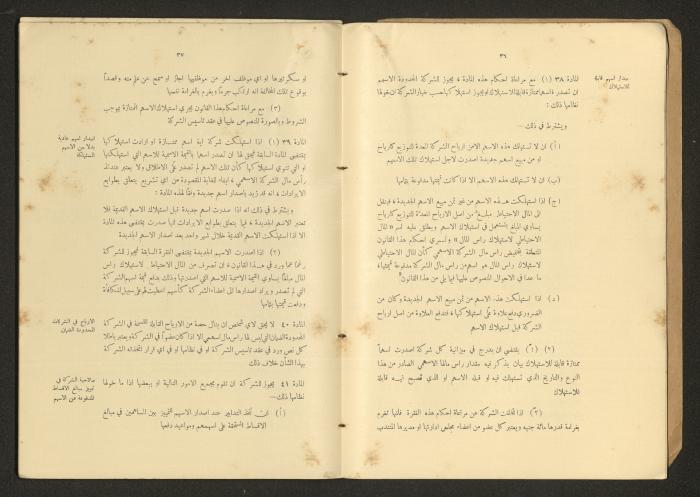 ٣٦
اصدار اسهم قابلة
للاستهلاك
المادة ٣٨ (١) مع مراعاة احكام هذه المادة ، يجوز للشركة المحدودة الاسهم
ان تصدر اسهماً ممتازة قابلة للاستهلاك او يجوز استهلاكها حسب خيار الشركة ان خولها
نظامها ذلك :
ويشترط في ذلك —
(أ) ان لا تستهلك هذه الاسهم الا من ارباح الشركة المعدة للتوزيع كارباح
او من مبيع اسهم جديدة اصدرت لاجل استهلاك تلك الاسهم
(ب) ان لا تستهلك هذه الاسهم الا اذا كانت قيمتها مدفوعة بتمامها
(ج) اذا استهلكت هذه الاسهم من غير ثمن مبيع الاسهم الجديدة ، فينقل
الى المال الاحتياطي مبلغ من اصل الارباح المعدة للتوزيع كارباح
يساوي المبلغ المستعمل في استهلاك الاسهم ويطلق عليه اسم « المال
الاحتياطي لاستهلاك راس المال » وتسري احكام هذا القانون
المتعلقة بتخفيض راس مال الشركة الاسمي كأن المال الاحتياطي
لاستهلاك راس المال هو اسهم من راس مال الشركة مدفوعة قيمتها ،
ما عدا في الاحوال المنصوص عليها فيما يلي من هذا القانون
(د) اذا استهلكت هذه الاسهم من ثمن مبيع الاسهم الجديدة وكان من
الضروري دفع علاوة على استهلاكها ، فتدفع العلاوة من اصل ارباح
الشركة قبل استهلاك الاسهم
(٢) (١) يقتضى ان يدرج في ميزانية كل شركة اصدرت اسهماً
ممتازة قابلة للاستهلاك بيان يذكر فيه مقدار راس مالها الاسمي الصادر من هذا
النوع والتاريخ الذي تستهلك فيه او قبله الاسهم او الذي تصبح فيه قابلة
للاستهلاك
(٢) اذا تخلفت الشركة عن مراعاة احكام هذه الفقرة فانها تغرم
بغرامة قدرها مائة جنيه ويعتبر كل عضو من اعضاء مجلس ادارتها او مديرها المنتدب
٣٧
او سكرتيرها او اي موظف آخر من موظفيها اجاز او سمح عن علم منه وقصداً
بوقوع تلك المخالفة انه ارتكب جرماً ويغرم بالغرامة نفسها
(٣) مع مراعاة احكام هذا القانون يجري استهلاك الاسهم الممتازة بموجب
الشروط وبالصورة المنصوص عليها في عقد تأسيس الشركة
اصدار اسهم عادية
بدلا من الاسهم
المستهلكة
المادة ٣٩ (١) اذا استهلكت شركة اية اسهم ممتازة او ارادت استهلاكها
بمقتضى المادة السابقة فيحق لها ان تصدر اسهماً بالقيمة الاسمية للاسهم التي استهلكتها
او التي تنوي استهلاكها كأن تلك الاسهم لم تصدر على الاطلاق ولا يعتبر عندئذ
رأس مال الشركة الاسمي ، ايفاء للغاية المقصودة من اي تشريع يتعلق بطوابع
الايرادات ، انه قد زيد باصدار اسهم جديدة وفقاً لهذه المادة :
ويشترط في ذلك انه اذا صدرت اسهم جديدة قبل استهلاك الاسهم القديمة فلا
تعتبر الاسهم الجديدة ، فيما يتعلق بطوابع الايرادات انها صدرت بمقتضى هذه المادة
الا اذا استهلكت الاسهم القديمة خلال شهر واحد بعد اصدار الاسهم الجديدة
(٢) اذا اصدرت الاسهم الجديدة بمقتضى الفقرة السابقة فيجوز للشركة
رغماً عما ورد في هذا القانون ، ان تصرف من المال الاحتياطي لاستهلاك راس
المال مبلغاً يساوي القيمة الاسمية للاسهم التي اصدرتها وذلك بدفع قيمة اسهم الشركة
التي لم تصدر ويراد اصدارها الى اعضاء الشركة كأسهم اعطيت لهم على سبيل المكافأة
ودفعت قيمتها بتمامها
الارباح في الشركات
المحدودة الضمان
المادة ٤٠ لا يحق لاي شخص ان ينال حصة من الارباح القابلة للقسمة في الشركة
المحدودة الضمان التي ليس لها راس مال اسهمي الا اذا كان عضواً في الشركة ويعتبر باطلا
كل نص ورد في عقد تأسيس الشركة او في نظامها او في اي قرار اتخذته الشركة
بهذا الشأن خلاف ذلك
صلاحية الشركة في
تمييز مبالغ الاقساط
المدفوعة عن الاسهم
المادة ٤١ يجوز للشركة ان تقوم بجميع الامور التالية او ببعضها اذا ما خولها
نظامها ذلك—
(أ) ان تتخذ التدابير عند اصدار الاسهم للتمييز بين المساهمين في مبالغ
الاقساط المستحقة على اسهمهم ومواعيد دفعها